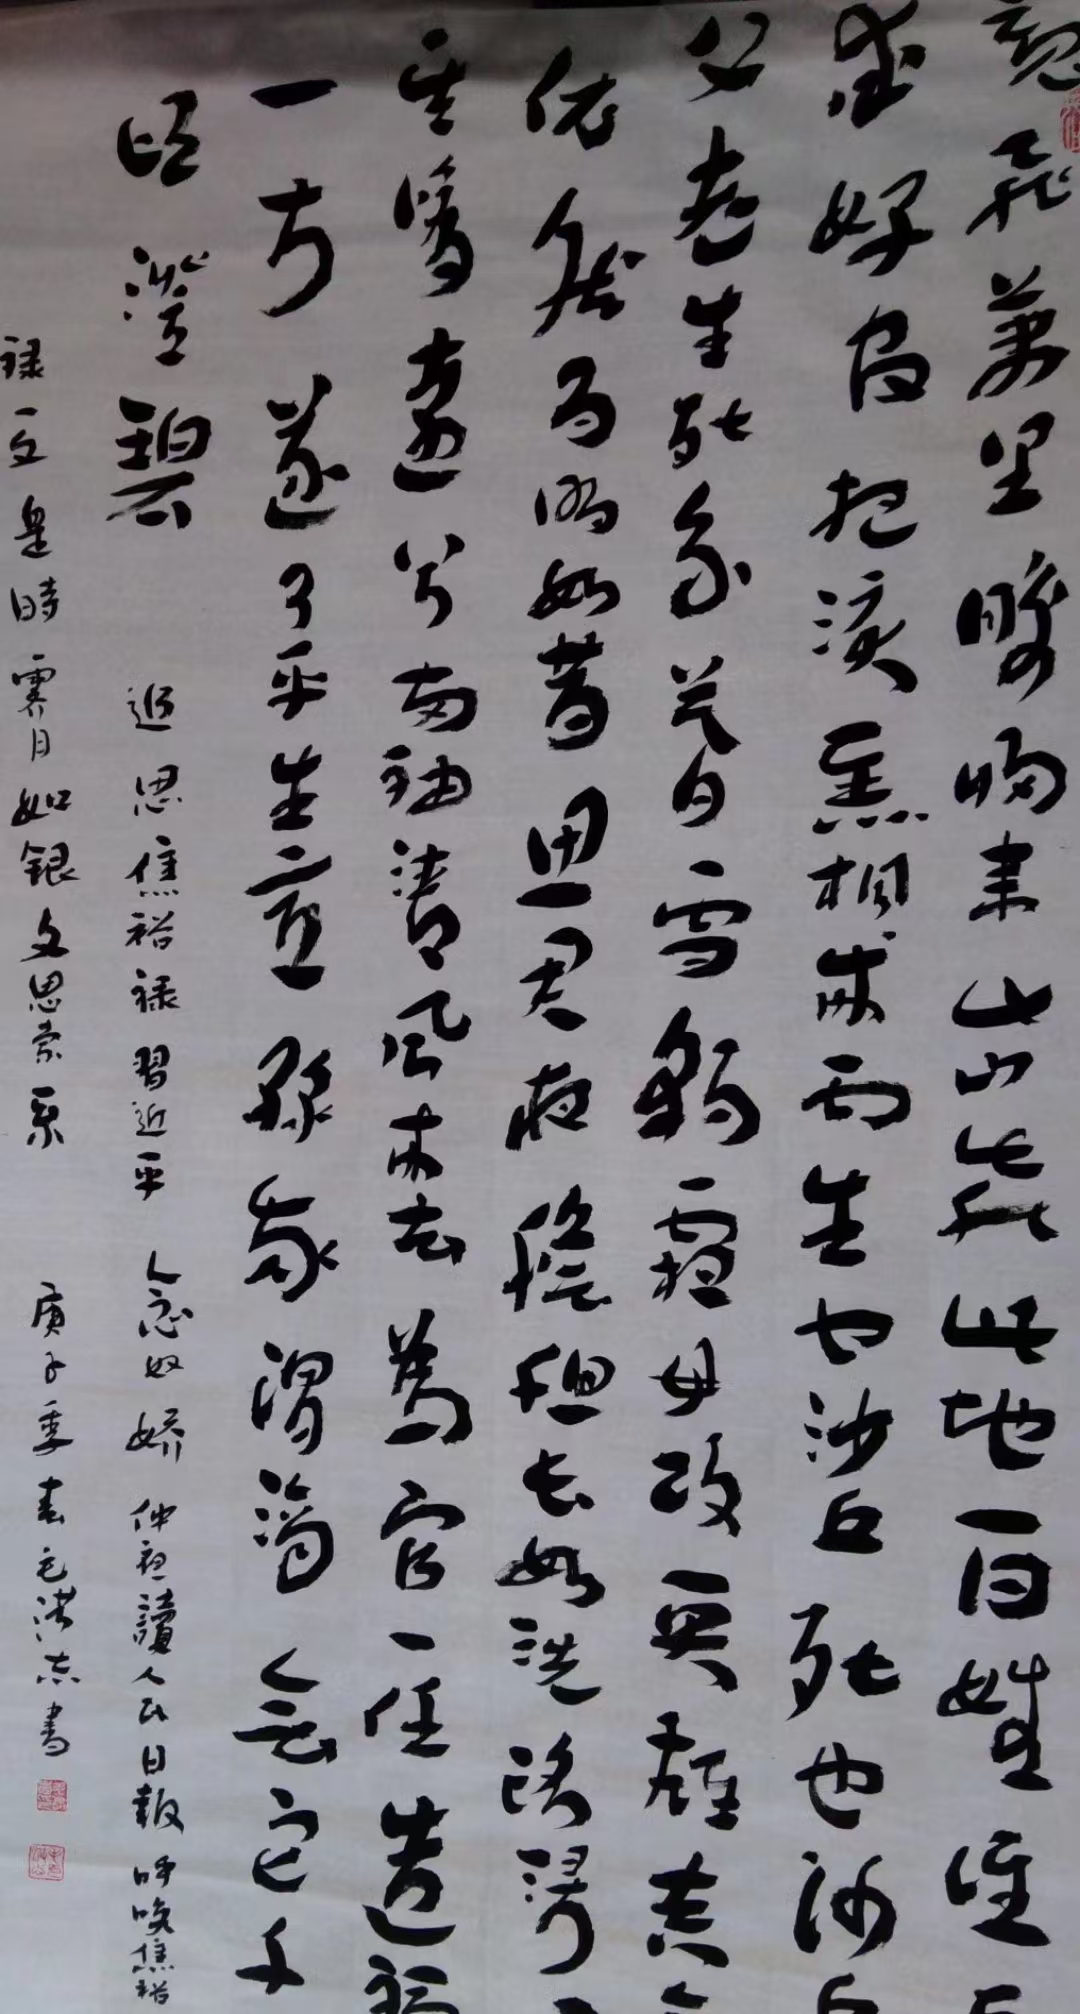 魂飛萬里盼歸來此水此山此地百姓誰
愛好官把淚焦桐成雨生也沙丘死也沙丘
父老生死系暮雪朝霜毋改英雄意氣
依然月明如昔思君夜夜肝膽長如洗路漫漫
其修遠兮兩袖清風來去為官一任造福
一方遂了平生意綠我涓滴會它千
頃澄碧 追思焦裕祿 習近平 念奴嬌 仲夜讀人民日報呼喚焦裕
祿一文是時霽月如銀文思縈系 庚子季春毛洪志書